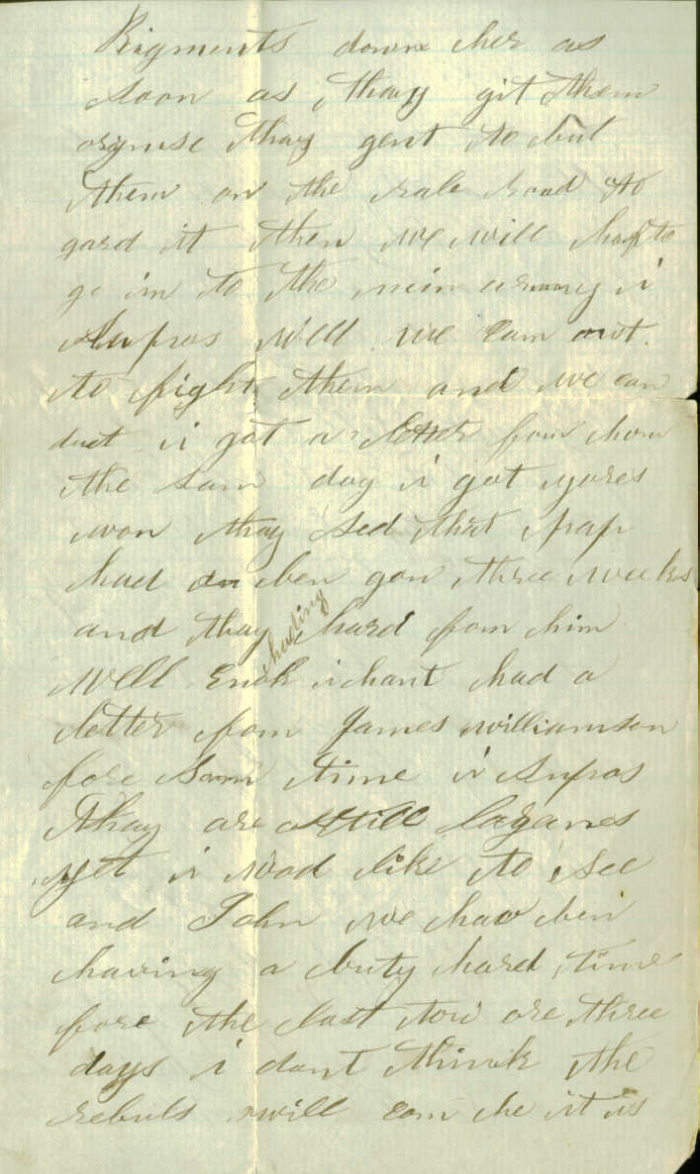 Rigments down her as
soon as thay git them
orgnise thay gent to but
them on the rale road to
gard it then we will haf to
go in to the main armey i
supros well we cam out
to fight them and we can
duet i got a letter from hom
the sam day i got yores
won thay sed that pap
had ben gon three weeks
and thay hading hard from him
well Enok i hant had a
letter from James williamson
fore som time i supros
thay are still
yet i wod like to see
and John we hav ben
having a buty hard time
fore the last tow ore three
days i dont think the
rebuls will com he it is